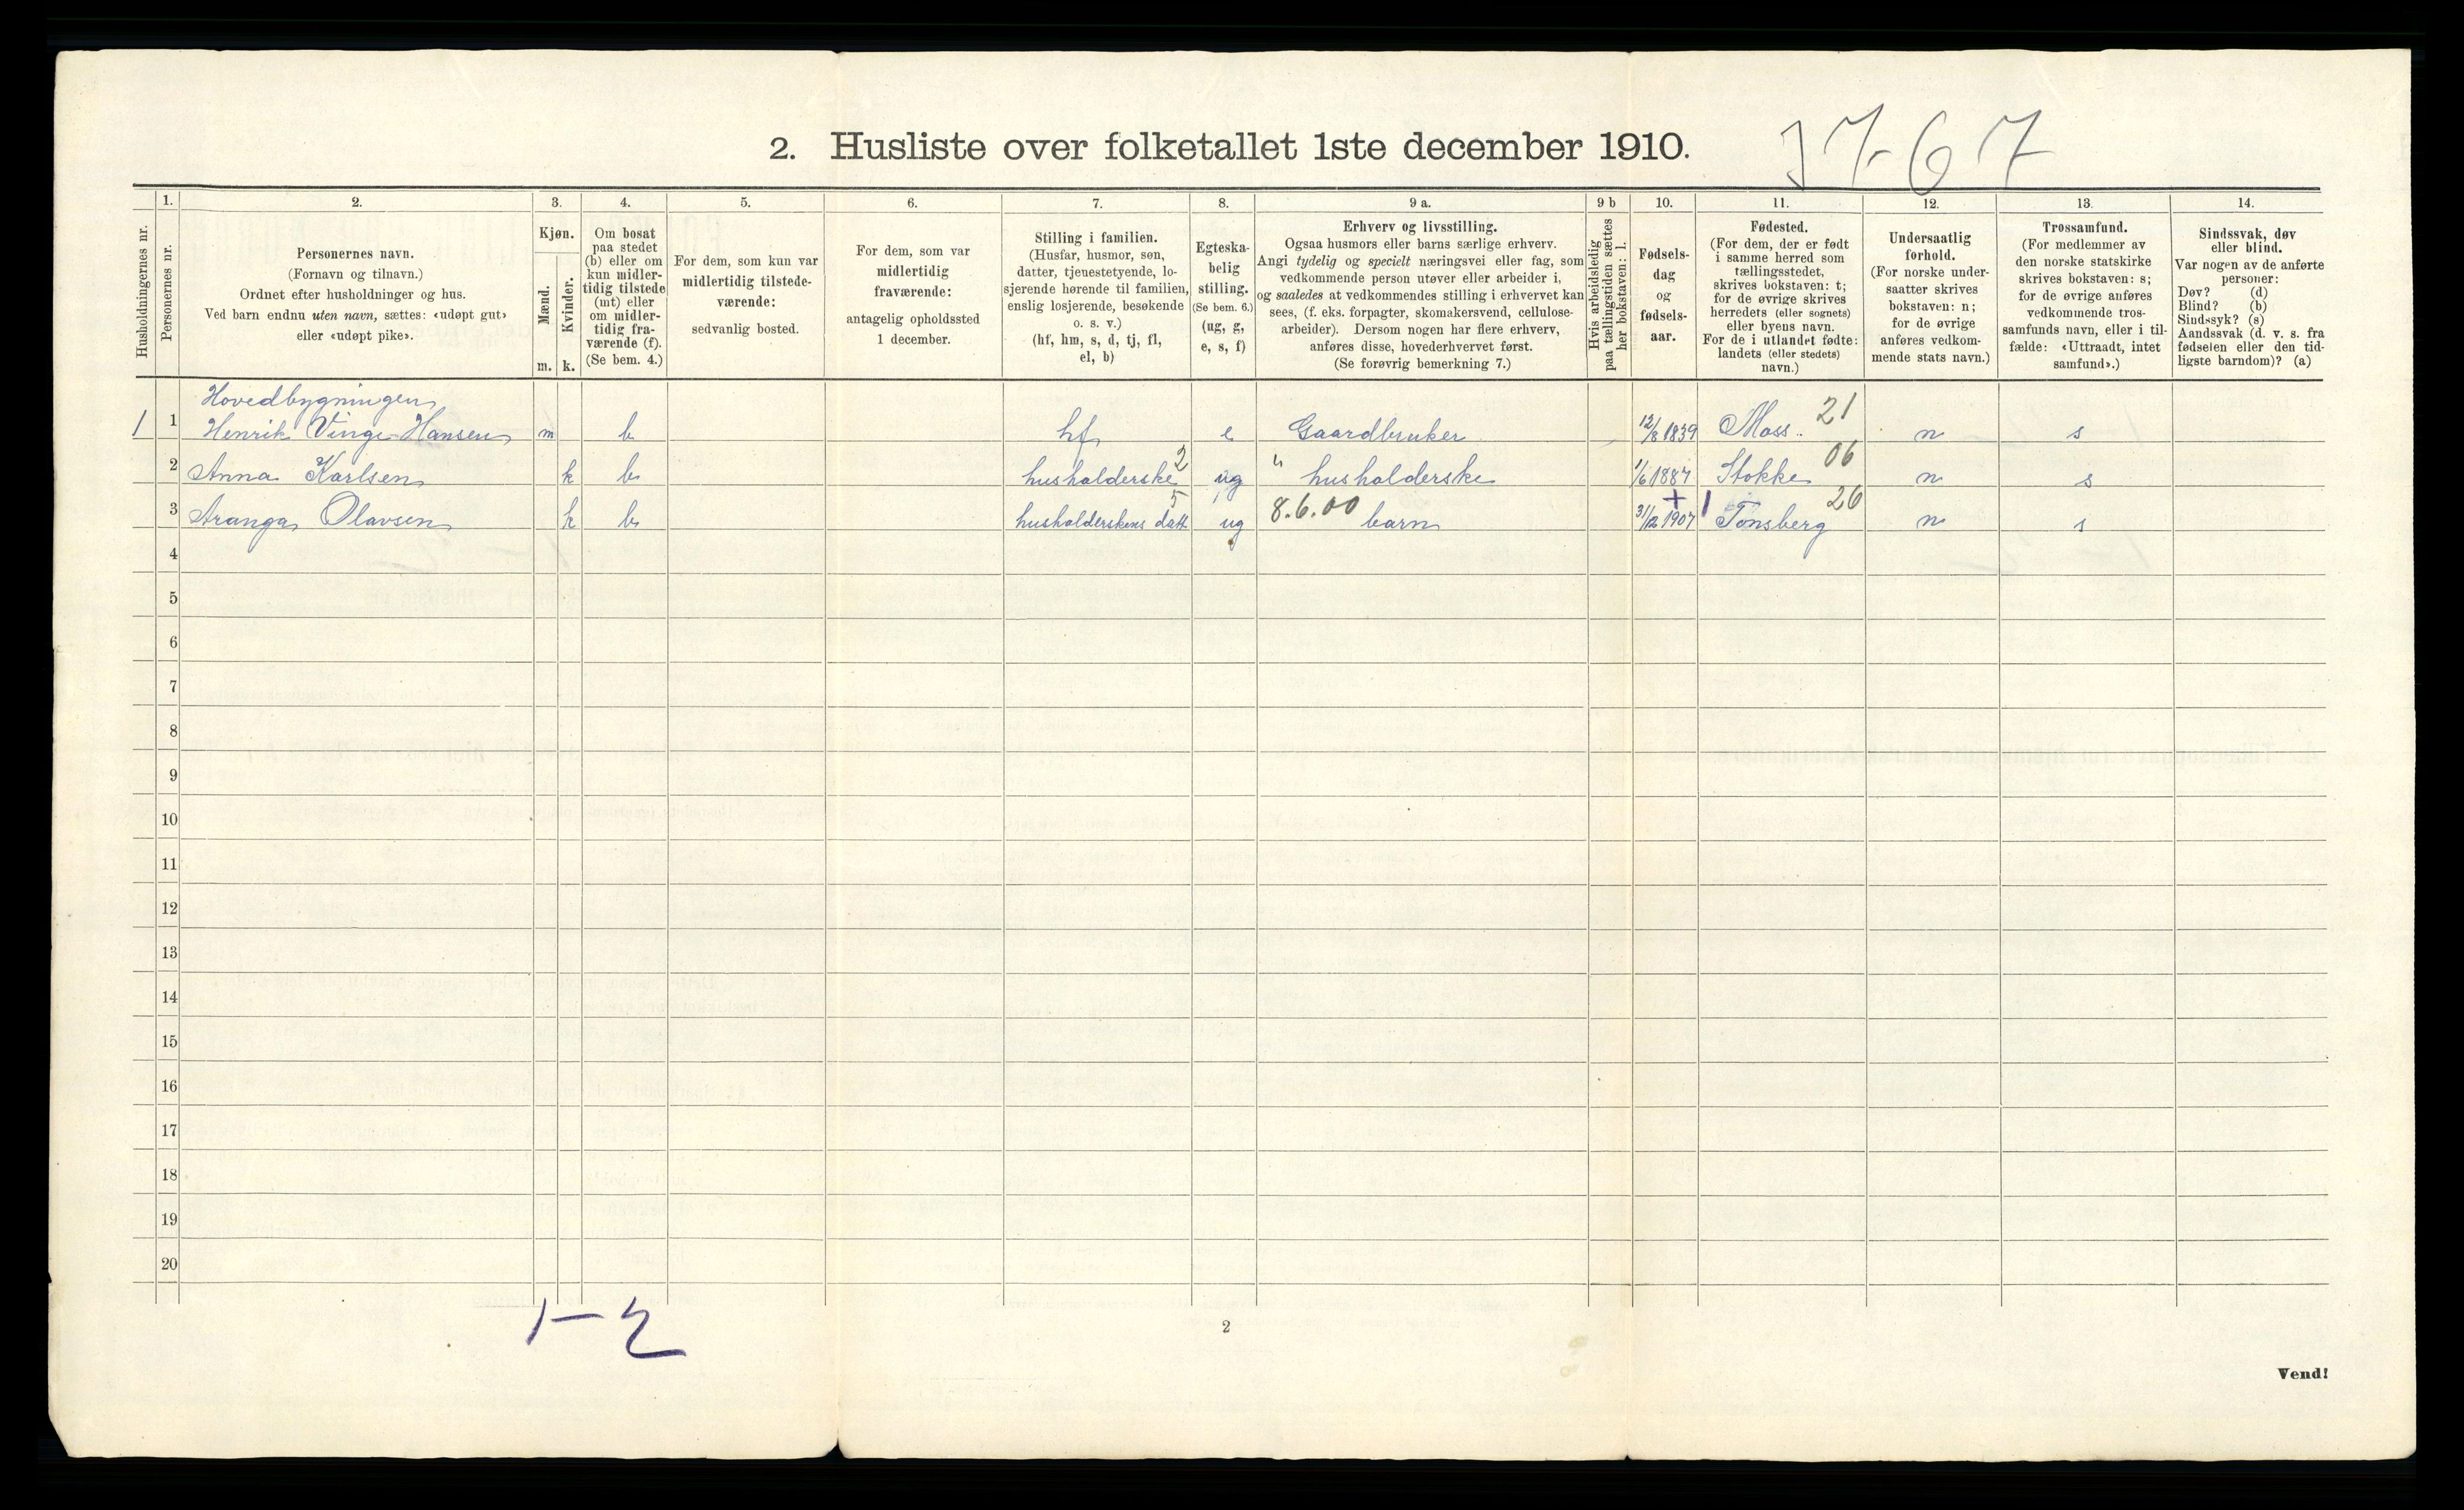 2. Husliste over folketallet 1ste december 1910.
1767
Husholdningernes nr.
1.
Personernes nr.
2.
Personernes navn.
(Fornavn og tilnavn.)
Ordnet efter husholdninger og hus.
Ved barn endnu uten navn, sættes: «udøpt gut»
eller «udøpt pike».
3.
Kjøn.
Mænd.
Kvinder.
m. k.
4.
Om bosat
paa stedet
(b) eller om
kun midler-
tidig tilstede
(mt) eller
om midler-
tidig fra-
værende (f).
(Se bem. 4.)
5.
For dem, som kun var
midlertidig tilstede-
værende:
sedvanlig bosted.
6.
For dem, som var
midlertidig
fraværende:
antagelig opholdssted
1 december.
7.
Stilling i familien.
(Husfar, husmor, søn,
datter, tjenestetyende, lo-
sjerende hørende til familien,
enslig losjerende, besøkende
o. s. v.)
(hf, hm, s, d, tj, fl,
el, b)
8.
Egteska-
belig
stilling.
(Se bem. 6.)
(ug, g,
e, s, f)
9 a.
Erhverv og livsstilling.
Ogsaa husmors eller barns særlige erhverv.
Angi tydelig og specielt næringsvei eller fag, som
vedkommende person utøver eller arbeider i,
og saaledes at vedkommendes stilling i erhvervet kan
sees, (f. eks. forpagter, skomakersvend, cellulose-
arbeider). Dersom nogen har flere erhverv,
anføres disse, hovederhvervet først.
(Se forøvrig bemerkning 7.)
9 b
Hvis arbeidsledig
paa tællingstiden sættes
her bokstaven: l.
10.
Fødsels-
dag
og
fødsels-
aar.
11.
Fødested.
(For dem, der er født
i samme herred som
tællingsstedet,
skrives bokstaven: t;
for de øvrige skrives
herredets (eller sognets)
eller byens navn.
For de i utlandet fødte:
landets (eller stedets)
navn.)
12.
Undersaatlig
forhold.
(For norske under-
saatter skrives
bokstaven: n;
for de øvrige
anføres vedkom-
mende stats navn.)
13.
Trossamfund.
(For medlemmer av
den norske statskirke
skrives bokstaven: s;
for de øvrige anføres
vedkommende tros-
samfunds navn, eller i til-
fælde: «Uttraadt, intet
samfund».)
14.
Sindssvak, døv
eller blind.
Var nogen av de anførte
personer:
Døv? (d)
Blind? (b)
Sindssyk? (s)
Aandssvak (d. v. s. fra
fødselen eller den tid-
ligste barndom)? (a)
Hovedbygningen
1 1 Henrik Vinge Hansen m b hf e Gaardbruker 12/8 1839 Moss. 21 n s
2 Anna Karlsen k b husholderske 2 ug " husholderske 1/6 1887 Stokke 06 n s
3 Aranga Olavsen k b husholderskens datt 5 ug 8.6.00 barn 31/12 1907 + 1 Tønsberg 26 n s
4
5
6
7
8
9
10
11
12
13
14
15
16
17
18
19
20
1-2
2
Vend!